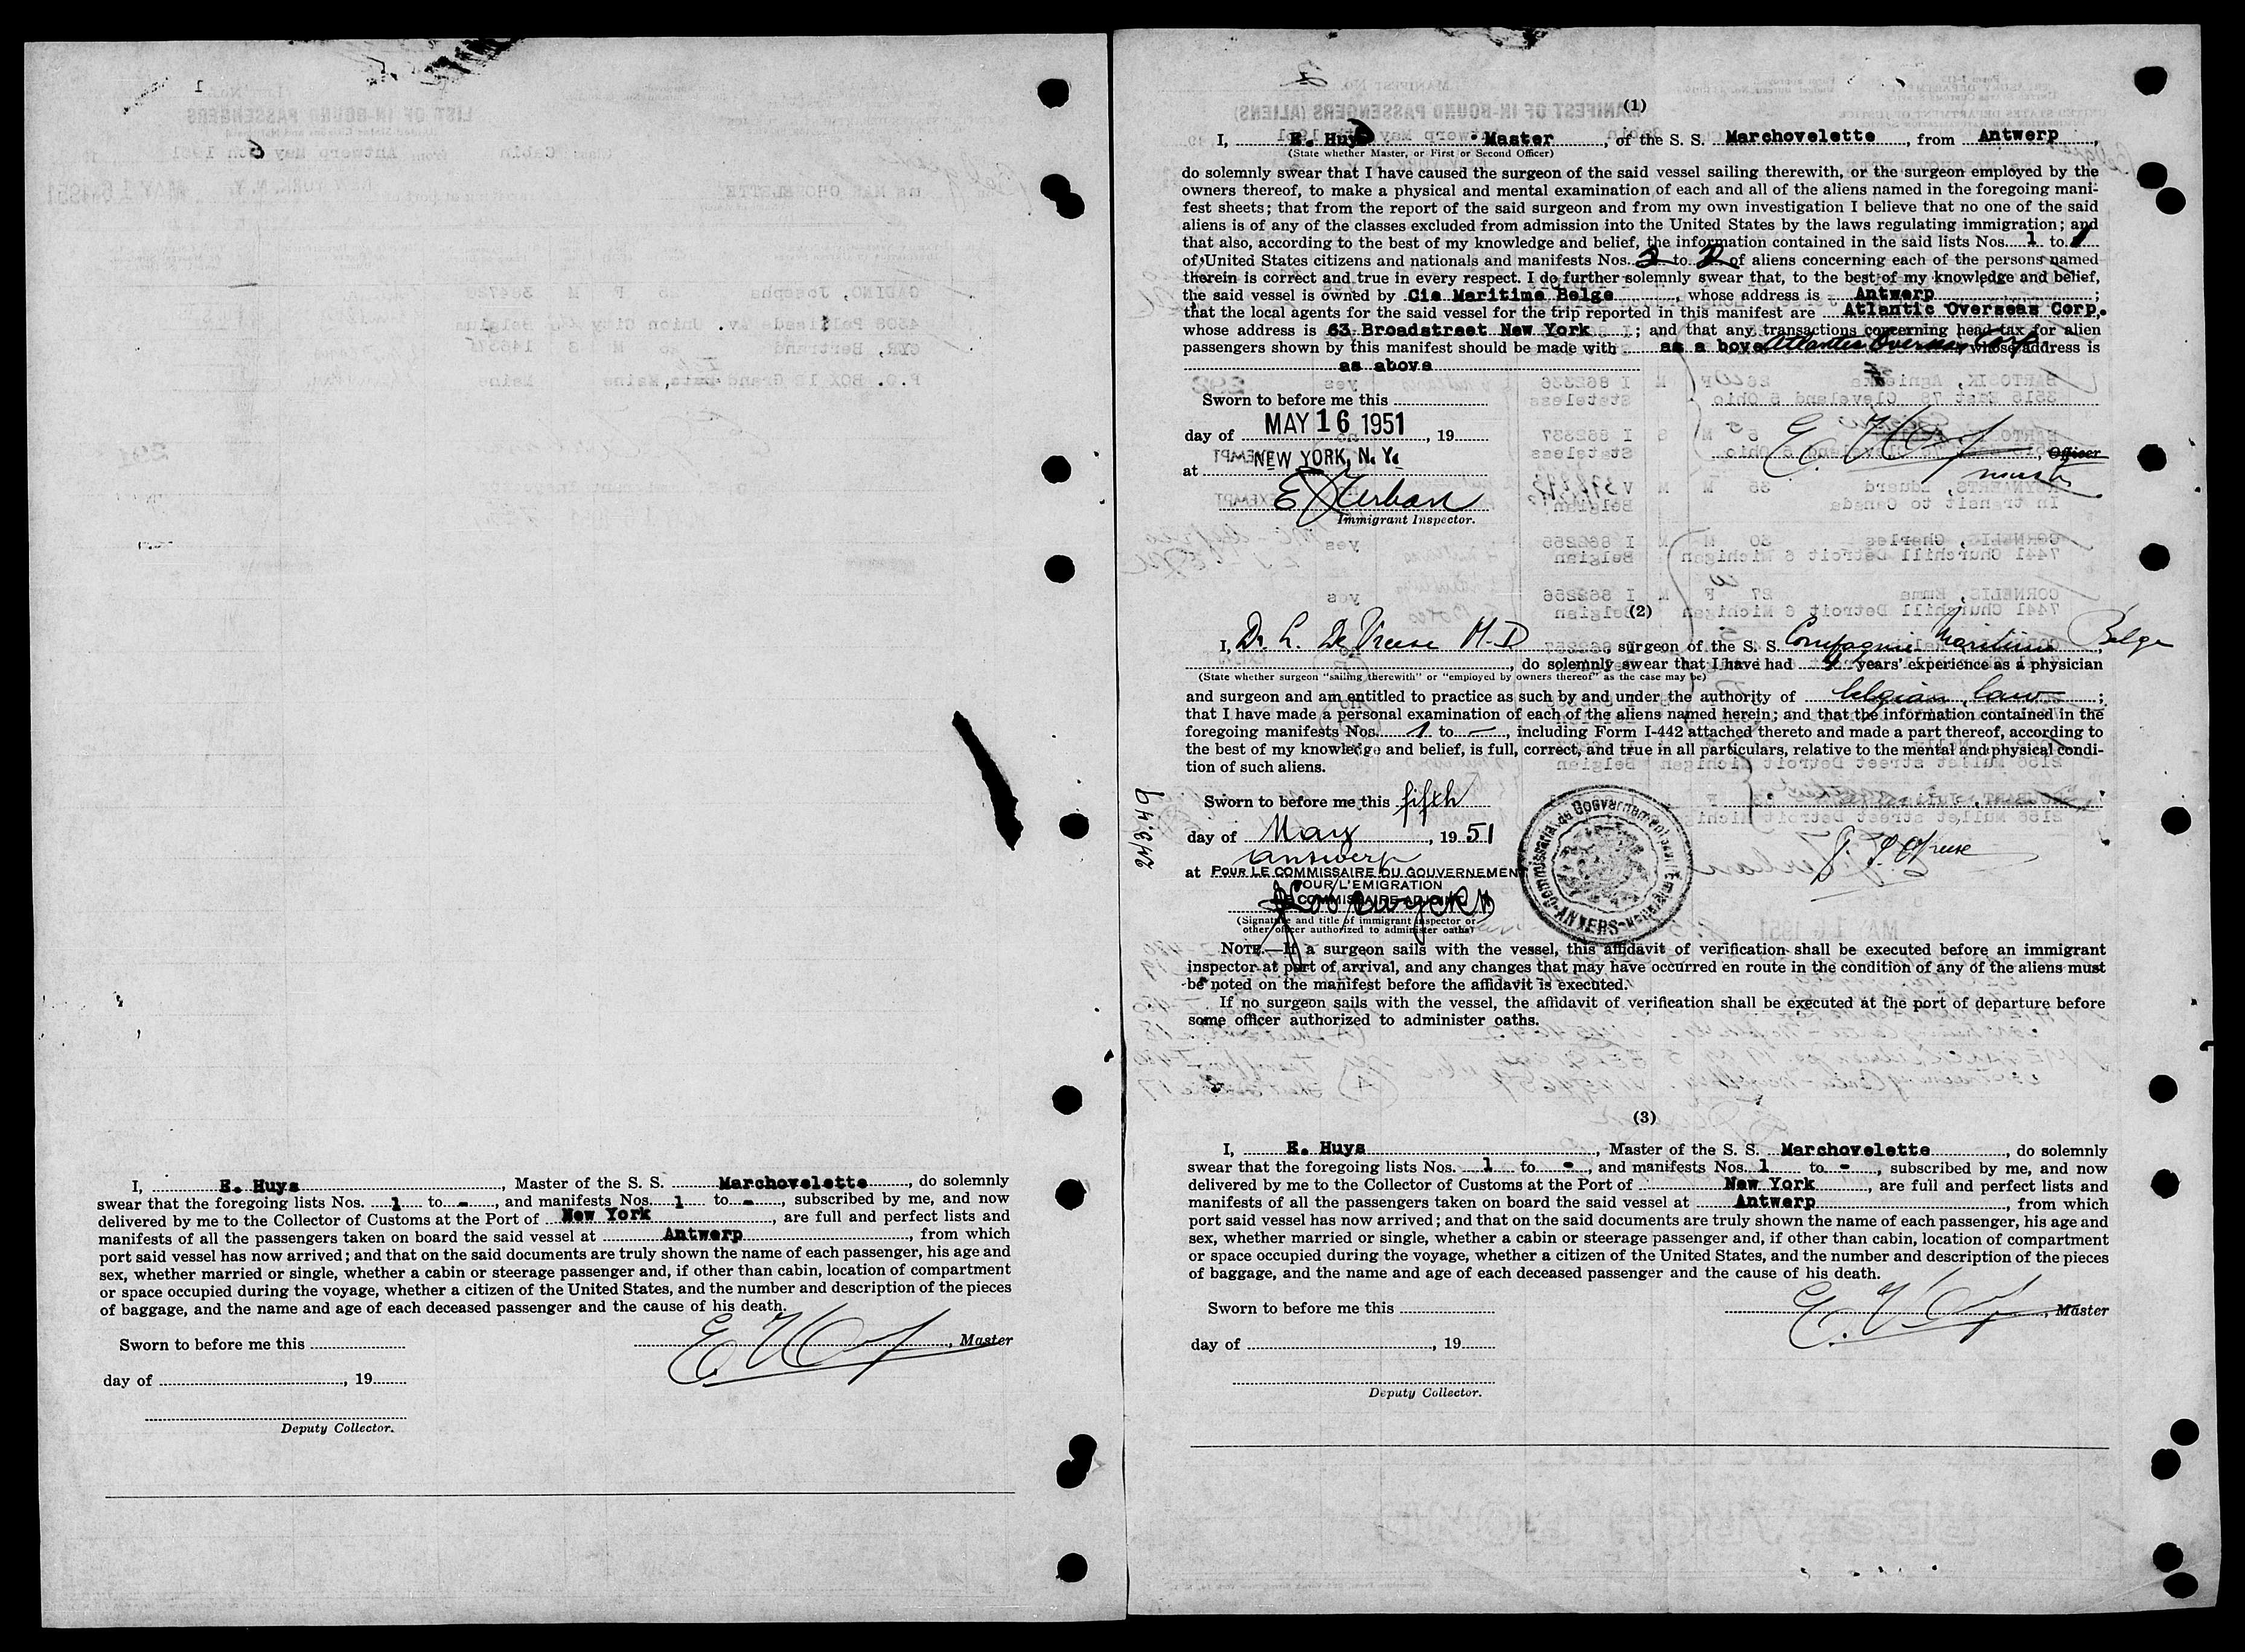 I, E. Huys, Master of the S. S. Marchovelette, do solemnly
swear that the foregoing lists Nos. 1 to -, and manifests Nos. 1 to -, subscribed by me, and now
delivered by me to the Collector of Customs at the Port of New York, are full and perfect lists and
manifests of all the passengers taken on board the said vessel at Antwerp, from which
port said vessel has now arrived; and that on the said documents are truly shown the name of each passenger, his age and
sex, whether married or single, whether a cabin or steerage passenger and, if other than cabin, location of compartment
or space occupied during the voyage, whether a citizen of the United States, and the number and description of the pieces
of baggage, and the name and age of each deceased passenger and the cause of his death.
Sworn to before me this
E. Huys, Master
day of , 19
Deputy Collector.
(1)
I, E. Huys Master, of the S. S. Marchovelette, from Antwerp,
(State whether Master, or First or Second Officer)
do solemnly swear that I have caused the surgeon of the said vessel sailing therewith, or the surgeon employed by the
owners thereof, to make a physical and mental examination of each and all of the aliens named in the foregoing mani-
fest sheets; that from the report of the said surgeon and from my own investigation I believe that no one of the said
aliens is of any of the classes excluded from admission into the United States by the laws regulating immigration; and
that also, according to the best of my knowledge and belief, the information contained in the said lists Nos. 1 to 1
of United States citizens and nationals and manifests Nos. 2 to 2 of aliens concerning each of the persons named
therein is correct and true in every respect. I do further solemnly swear that, to the best of my knowledge and belief,
the said vessel is owned by Cie Maritime Belge, whose address is Antwerp;
that the local agents for the said vessel for the trip reported in this manifest are Atlantic Overseas Corp.
whose address is 63 Broadstreet New York; and that any transactions concerning head tax for alien
passengers shown by this manifest should be made with as a bove Atlantic Overseas Corp, whose address is
as above
Sworn to before me this
day of MAY 16 1951, 19
E. Huys, Officer
master
at NEW YORK, N. Y.
E Zerban
Immigrant Inspector.
(2)
I, Dr. L. De Vreese M.D, surgeon of the S. S. Compagnie Maritime Belge,
, do solemnly swear that I have had 4 years' experience as a physician
(State whether surgeon "sailing therewith" or "employed by owners thereof" as the case may be)
and surgeon and am entitled to practice as such by and under the authority of belgian law;
that I have made a personal examination of each of the aliens named herein; and that the information contained in the
foregoing manifests Nos. 1 to -, including Form I-442 attached thereto and made a part thereof, according to
the best of my knowledge and belief, is full, correct, and true in all particulars, relative to the mental and physical condi-
tion of such aliens.
Sworn to before me this fifth
day of May, 1951
Antwerp
at POUR LE COMMISSAIRE DU GOUVERNEMENT
POUR L'EMIGRATION
LE COMMISSAIRE-ADJOINT
(Signature and title of immigrant inspector or
other officer authorized to administer oaths)
NOTE.—If a surgeon sails with the vessel, this affidavit of verification shall be executed before an immigrant
inspector at port of arrival, and any changes that may have occurred en route in the condition of any of the aliens must
be noted on the manifest before the affidavit is executed.
If no surgeon sails with the vessel, the affidavit of verification shall be executed at the port of departure before
some officer authorized to administer oaths.
(3)
I, E. Huys, Master of the S. S. Marchovelette, do solemnly
swear that the foregoing lists Nos. 1 to -, and manifests Nos. 1 to -, subscribed by me, and now
delivered by me to the Collector of Customs at the Port of New York, are full and perfect lists and
manifests of all the passengers taken on board the said vessel at Antwerp, from which
port said vessel has now arrived; and that on the said documents are truly shown the name of each passenger, his age and
sex, whether married or single, whether a cabin or steerage passenger and, if other than cabin, location of compartment
or space occupied during the voyage, whether a citizen of the United States, and the number and description of the pieces
of baggage, and the name and age of each deceased passenger and the cause of his death.
Sworn to before me this
E. Huys, Master
day of , 19
Deputy Collector.